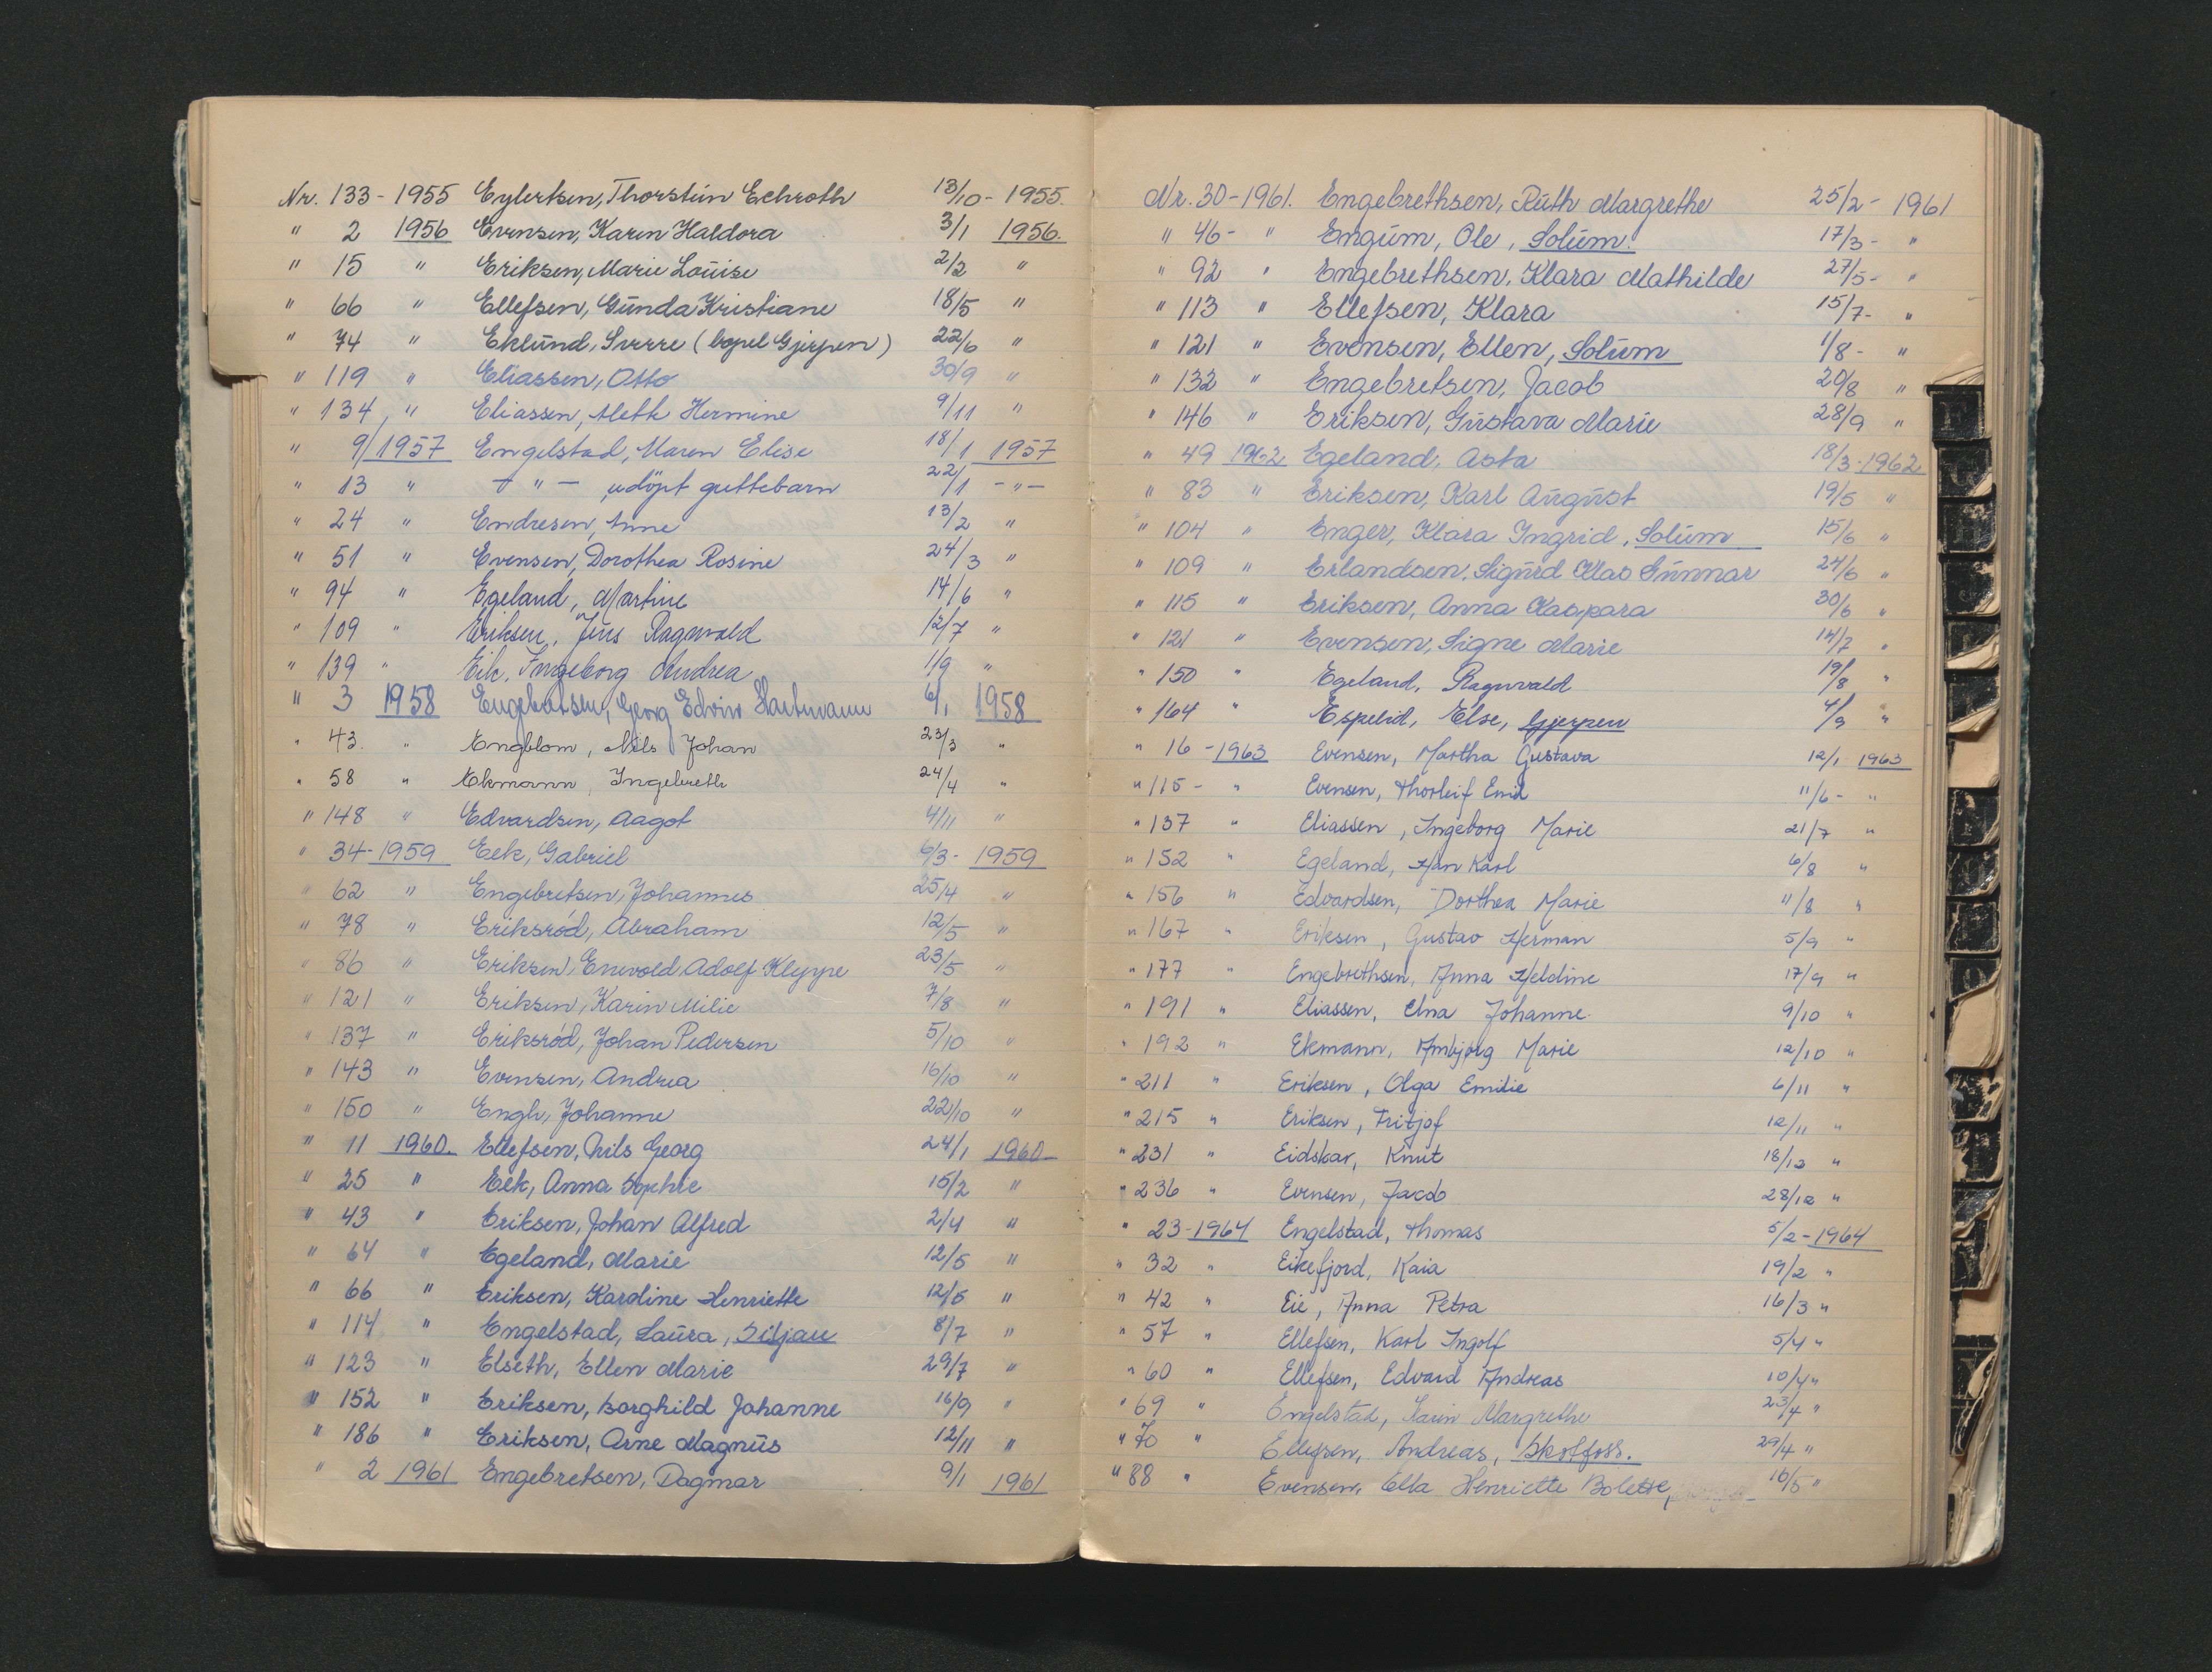 Nr. 133 - 1955 Eylertsen, Thorstein Echroth 13/10 - 1955.
" 2 1956 Evensen, Karen Haldora 3/1 1956.
" 15 " Eriksen, Marie Louise 2/2 "
" 66 " Ellefsen, Gunda Kristiane 18/5 "
" 74 " Eklund, Sverre (bopel Gjerpen) 22/6 "
" 119 " Eliassen, Otto 30/9 "
" 134 " Eliassen, Meth Hermine 9/11 "
" 9/1957 Engelstad, Maren Elise 18/1 1957
" 13 " - " - udöpt guttebarn 22/1 - " -
" 24 " Endresen, Anne 13/2 "
" 51 " Evensen, Dorothea Rosine 24/3 "
" 94 " Egeland, Martine 14/6 "
" 109 " Eriksen, Jens Ragnvald 12/7 "
" 139 " Eik, Ingeborg Andrea 1/9 "
" 3 1958 Engebretsen, Georg Edvin Hartmann 6/1 1958
" 43. " Engblom, Nils Johan 23/3 "
" 58 " Ekmann, Ingebreth 24/4 "
" 148 " Edvardsen, Aagot 4/11 "
" 34-1959 Eek, Gabriel 6/3 - 1959
" 62 " Engebretsen, Johannes 25/4 "
" 78 " Eriksrød, Abraham 12/5 "
" 86 " Eriksen, Enevold Adolf Kleppe 23/5 "
" 121 " Eriksen, Karin Milie 7/8 "
" 137 " Eriksrød, Johan Pedersen 5/10 "
" 143 " Evensen, Andrea 16/10 "
" 150 " Engh, Johanne 22/10 "
" 11 1960. Ellefsen, Nils Georg 24/1 1960
" 25 " Eek, Anna Sophie 15/2 "
" 43 " Eriksen, Johan Alfred 2/4 "
" 64 " Egeland, Marie 12/5 "
" 66 " Eriksen, Karoline Henriette 12/5 "
" 114 " Engelstad, Laura, Siljan 8/7 "
" 123 " Elseth, Ellen Marie 29/7 "
" 152 " Eriksen, Borghild Johanne 16/9 "
" 186 " Eriksen, Arne Magnus 12/11 "
" 2 1961 Engebretsen, Dagmar 9/1 1961
Nr. 30-1961. Engebrethsen, Ruth Margrethe 25/2 - 1961
" 46 - " Engum, Ole, Solum. 17/3 - "
" 92 " Engebrethsen, Klara Mathilde 27/5 - "
" 113 " Ellefsen, Klara 15/7 - "
" 121 " Evensen, Ellen, Solum 1/8 - "
" 132 " Engebretsen, Jacob 20/8 "
" 146 " Eriksen, Gustava Marie 28/9 "
" 49 1962 Egeland, Asta 18/3-1962
" 83 " Eriksen, Karl August 19/5 "
" 104 " Enger, Klara Ingrid, Solum 15/6 "
" 109 " Erlandsen, Sigurd Klas Gunnar 24/6 "
" 115 " Eriksen, Anna Kaspara 30/6 "
" 121 " Evensen, Signe Marie 14/7 "
" 150 " Egeland, Ragnvald 19/8 "
" 164 " Espelid, Else, Gjerpen 4/9 "
" 16 - 1963 Evensen, Martha Gustava 12/1 1963
" 115 - " Evensen, Thorleif Emil 11/6 - "
" 137 " Eliassen, Ingeborg Marie 21/7 "
" 152 " Egeland, Han Karl 6/8 "
" 156 " Edvardsen, Dorthea Marie 11/8 "
" 167 " Eriksen, Gustav Herman 5/9 "
" 177 " Engebrethsen, Anna Heldine 17/9 "
" 191 " Eliassen, Elna Johanne 9/10 "
" 192 " Ekmann, Ambjørg Marie 12/10 "
" 211 " Eriksen, Olga Emilie 6/11 "
" 215 " Eriksen, Fritjof 12/11 "
" 231 " Eidskar, Knut 18/12 "
" 236 " Evensen, Jacob 28/12 "
" 23-1964 Engelstad, Thomas 5/2-1964
" 32 " Eikefjord, Kaia 19/2 "
" 42 " Eie, Anna Petra 16/3 "
" 57 " Ellefsen, Karl Ingolf 5/4 "
" 60 " Ellefsen, Edvard Andreas 10/4 "
" 69 " Engelstad, Karin Margrethe 23/4 "
" 70 " Ellefsen, Andreas, Skotfoss. 29/4 "
" 88 " Evensen, Ella Henriette Bolette, 16/5 "